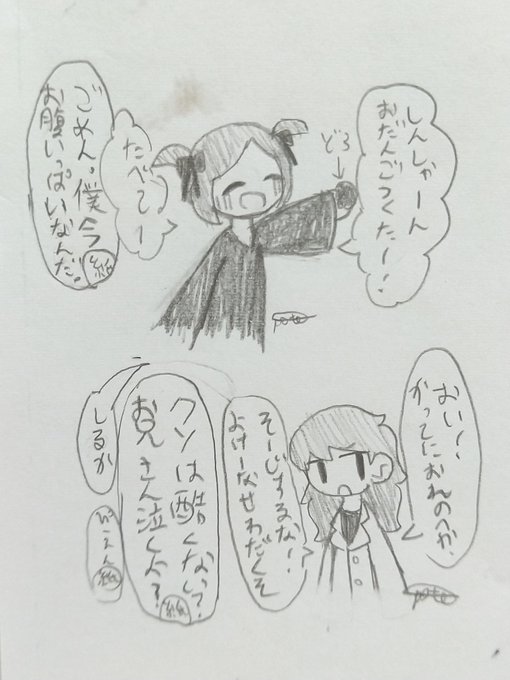 しんしゃーん
おだんごつくたー!
どろ
↓
たべてー
ごめん。僕今
お腹いっぱいなんだ。
絵
poteo
おい!
かってにおれのへや
そーじするな!
よけーなせわだくそ
クソは酷くない?
お兄さん泣くよ?
絵
しるか
ぴえん
絵